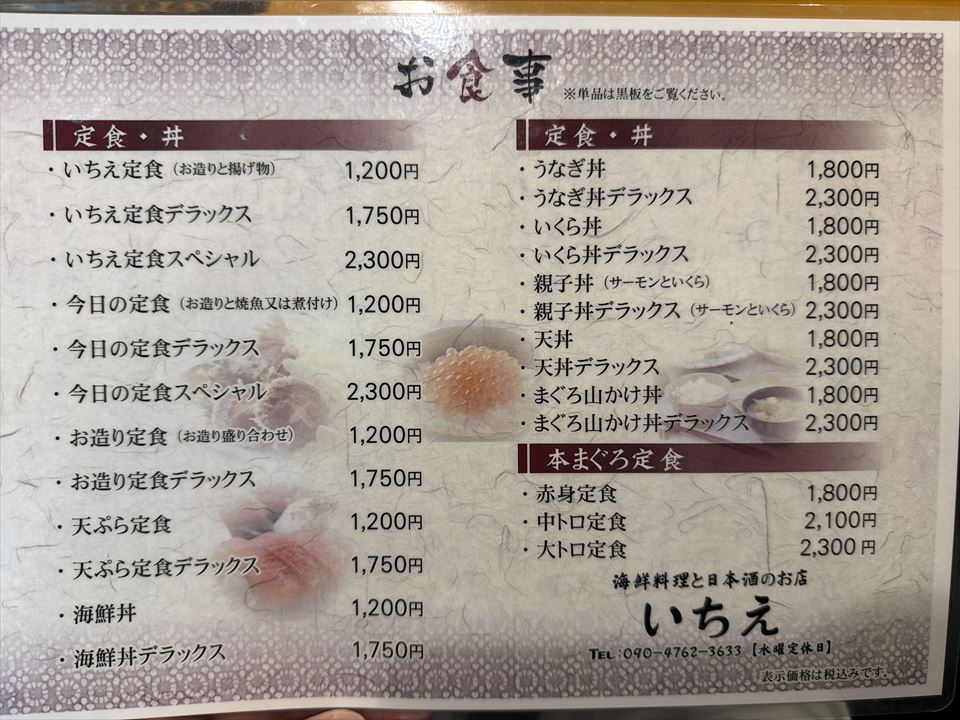 お食事 ※単品は黒板をご覧ください。
定食・丼
・いちえ定食（お造りと揚げ物） 1,200円
・いちえ定食デラックス 1,750円
・いちえ定食スペシャル 2,300円
・今日の定食（お造りと焼魚又は煮付け） 1,200円
・今日の定食デラックス 1,750円
・今日の定食スペシャル 2,300円
・お造り定食（お造り盛り合わせ） 1,200円
・お造り定食デラックス 1,750円
・天ぷら定食 1,200円
・天ぷら定食デラックス 1,750円
・海鮮丼 1,200円
・海鮮丼デラックス 1,750円
定食・丼
・うなぎ丼 1,800円
・うなぎ丼デラックス 2,300円
・いくら丼 1,800円
・いくら丼デラックス 2,300円
・親子丼（サーモンといくら） 1,800円
・親子丼デラックス（サーモンといくら） 2,300円
・天丼 1,800円
・天丼デラックス 2,300円
・まぐろ山かけ丼 1,800円
・まぐろ山かけ丼デラックス 2,300円
本まぐろ定食
・赤身定食 1,800円
・中トロ定食 2,100円
・大トロ定食 2,300円
海鮮料理と日本酒のお店
いちえ
TEL:090-4762-3633【水曜定休日】
表示価格は税込みです。